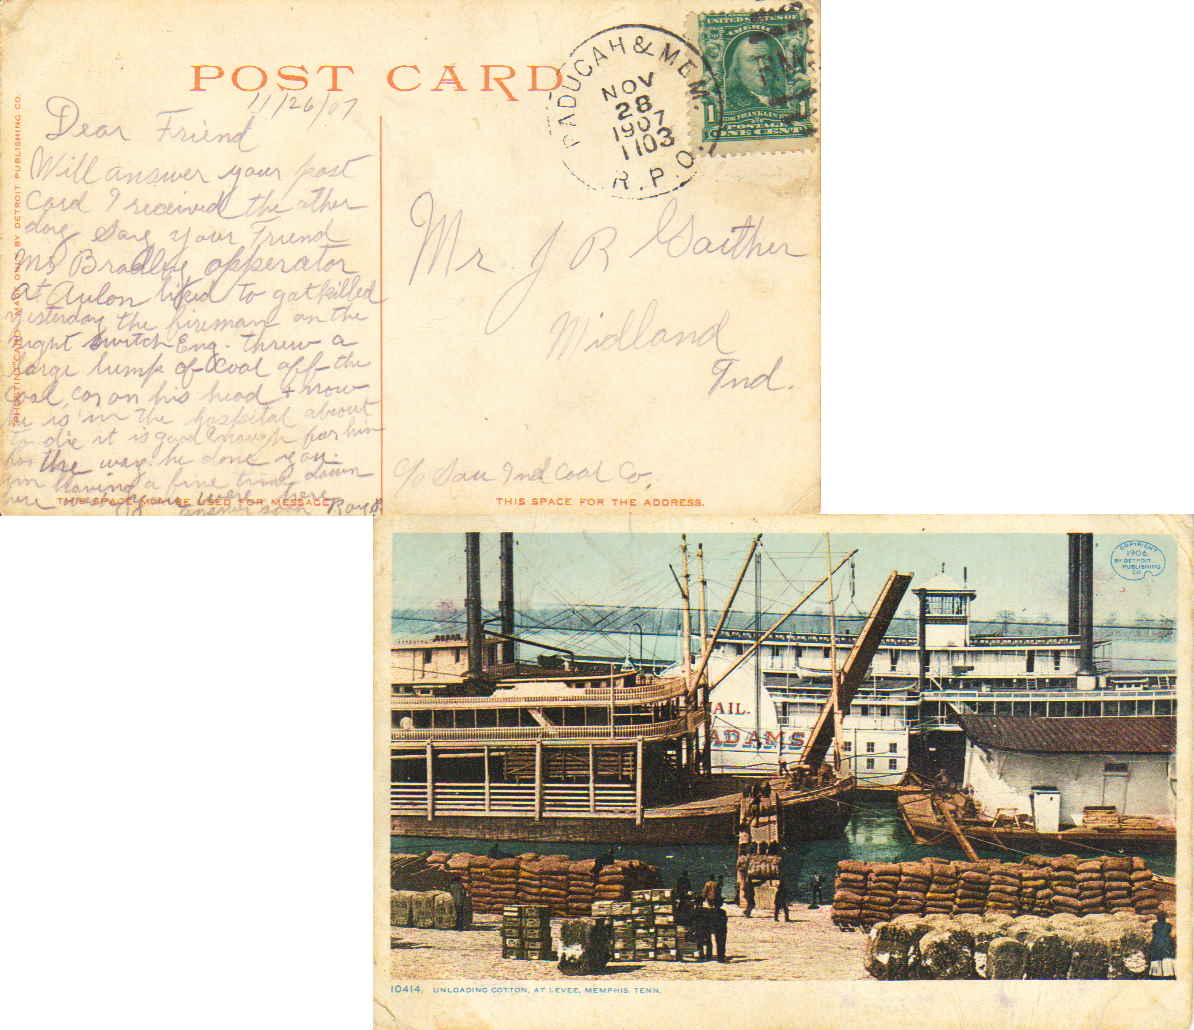 POST CARD
11/26/07
Dear Friend
Will answer your post
Card I received the other
day Say your Friend
Mr Bradley opperator
at Aulon liked to got killed
yesterday the fireman on the
night switch Eng. threw a
large lump of coal off the
coal car on his head + now
he is in the hospital about
to die it is good enough for him
for the way he done you.
am having a fine time down
here were here
answer soon Roy
THIS SPACE MAY BE USED FOR MESSAGE
PHOSTINT CARD MADE ONLY BY DETROIT PUBLISHING CO.
PADUCAH & MEM.
NOV
28
1907
1103
R.P.O.
UNITED STATES OF
AMERICA
1
FRANKLIN
POSTAGE
ONE CENT
Mr J R Gaither
Midland
Ind.
c/o Sou Ind Coal Co.
THIS SPACE FOR THE ADDRESS.
COPYRIGHT
1906
BY DETROIT
PUBLISHING
CO.
MAIL.
ADAMS
10414. UNLOADING COTTON, AT LEVEE, MEMPHIS, TENN.